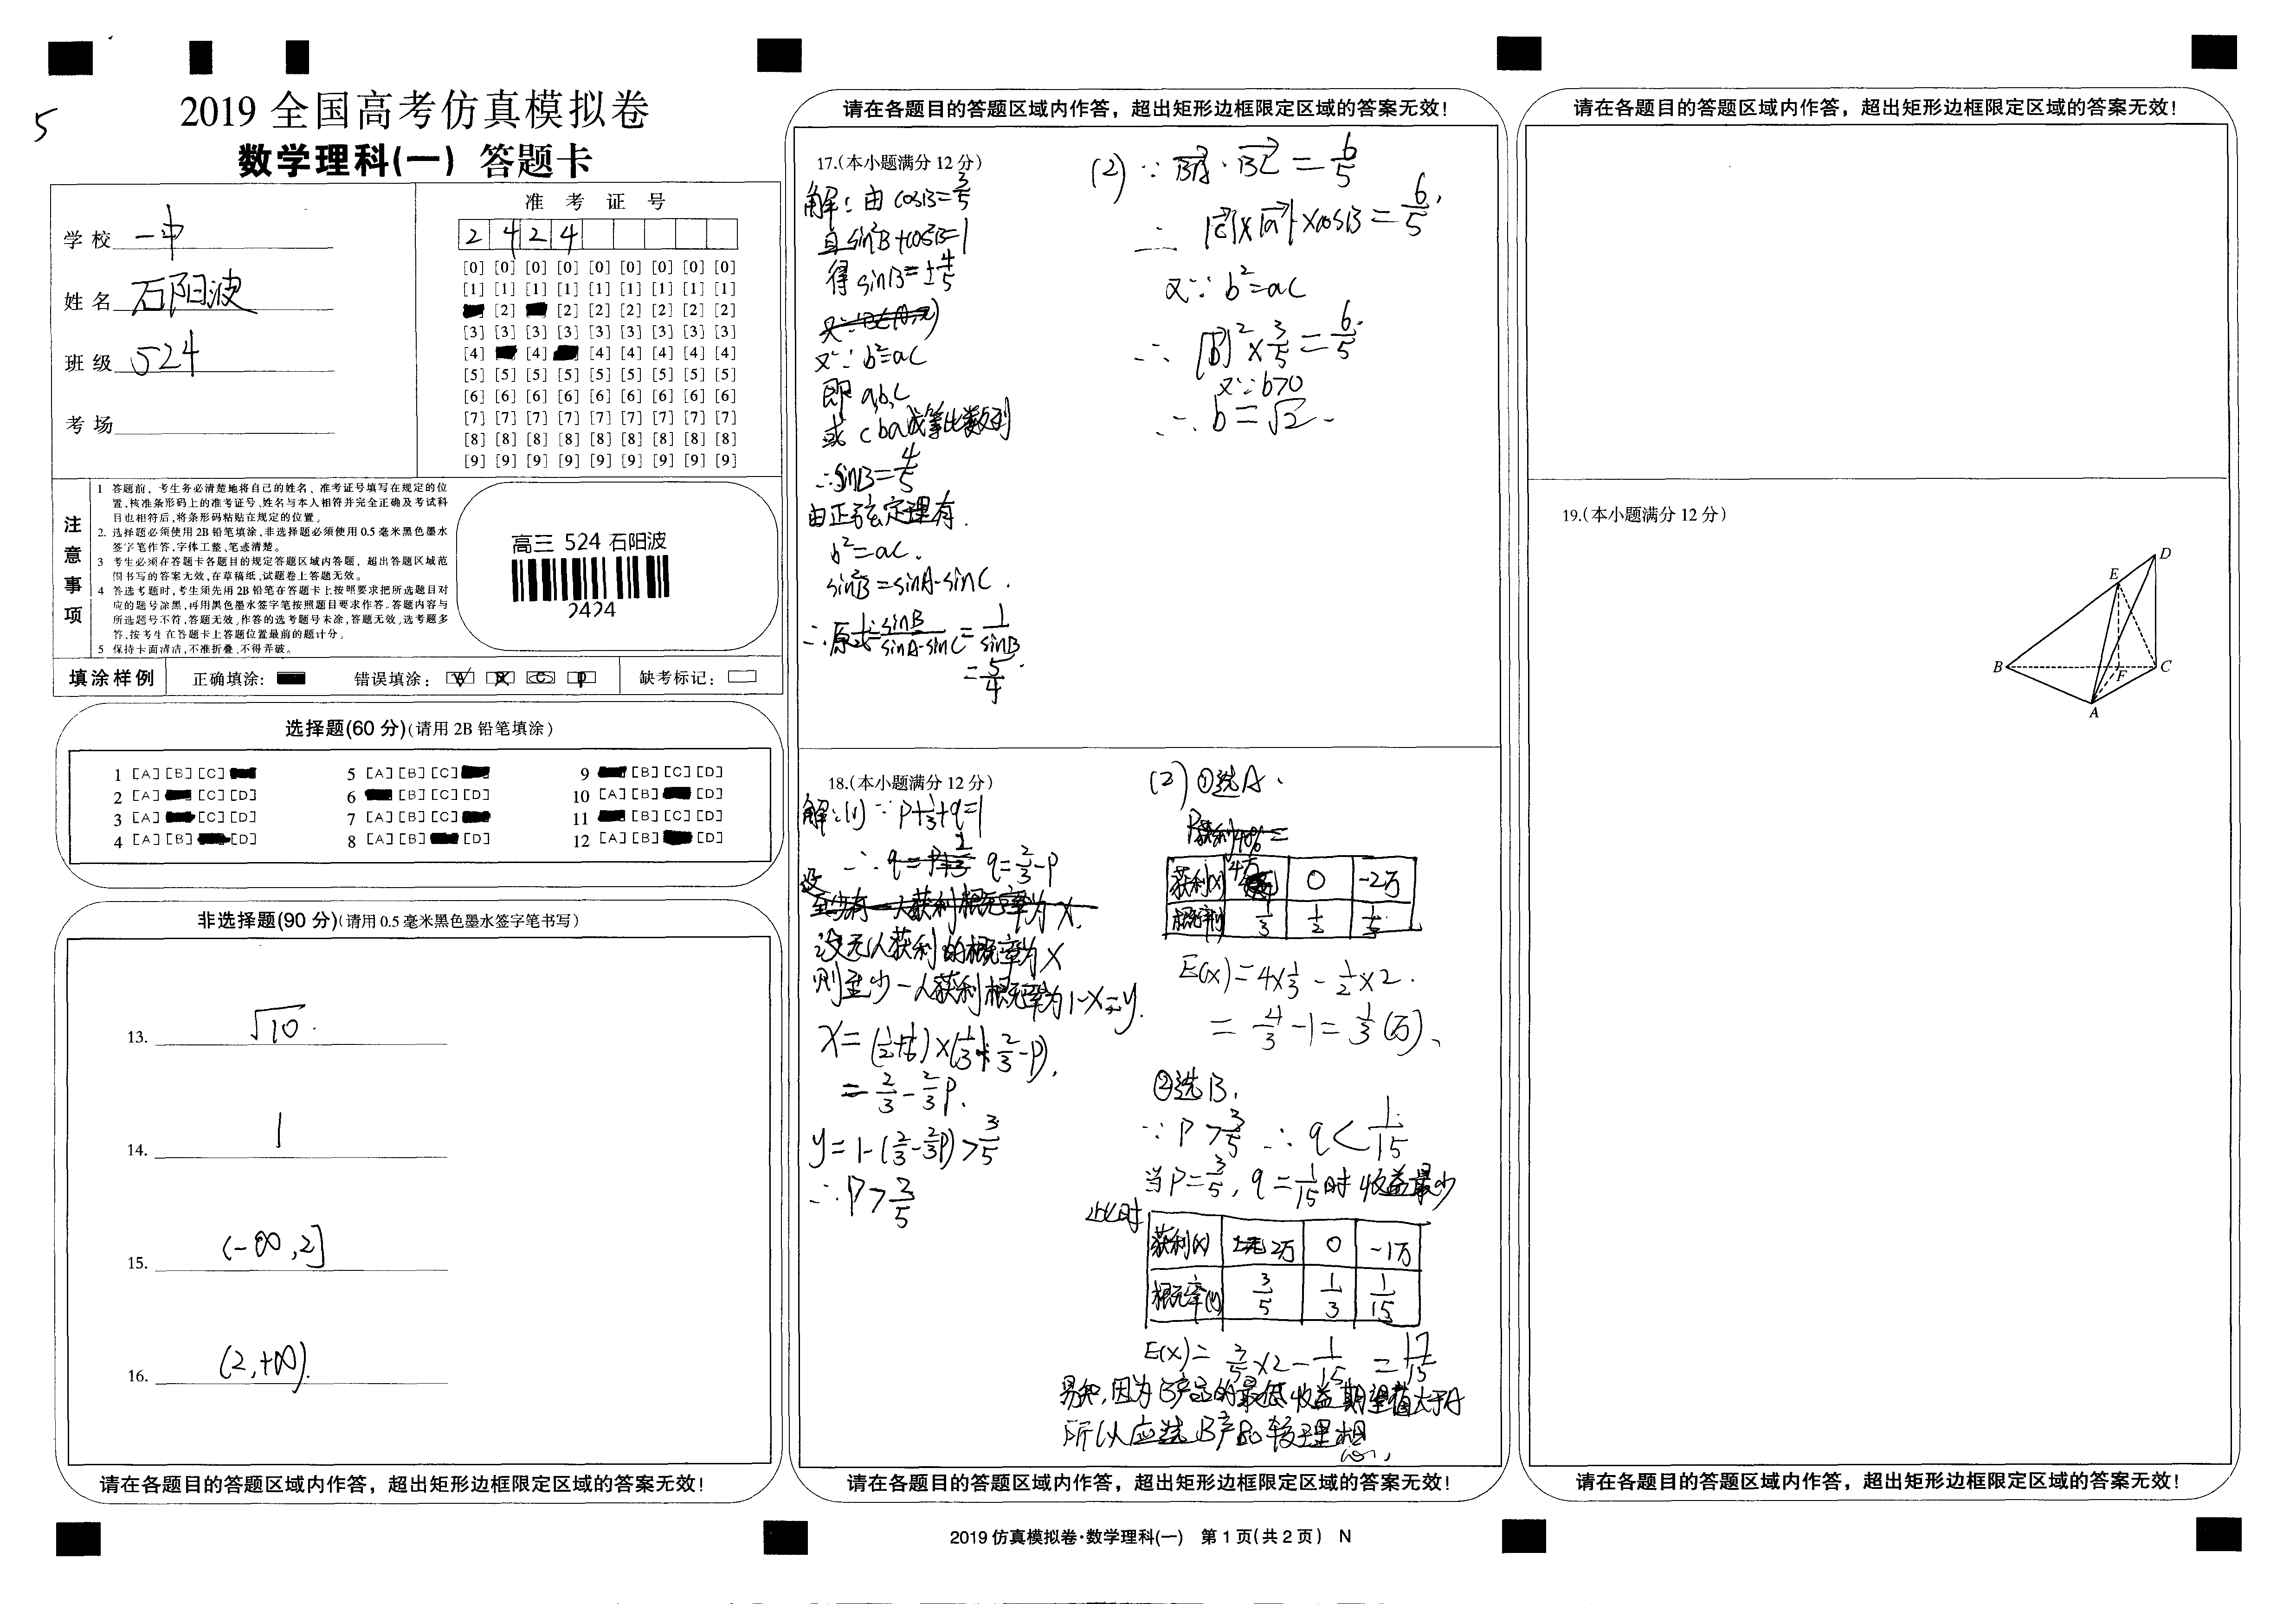 5
2019 全国高考仿真模拟卷
数学理科(一) 答题卡
学校 一中
姓名 石阳波
班级 524
考场
准考证号
2 4 2 4
[0] [0] [0] [0] [0] [0] [0] [0] [0]
[1] [1] [1] [1] [1] [1] [1] [1] [1]
[2] [2] [2] [2] [2] [2] [2]
[3] [3] [3] [3] [3] [3] [3] [3] [3]
[4] [4] [4] [4] [4] [4] [4]
[5] [5] [5] [5] [5] [5] [5] [5] [5]
[6] [6] [6] [6] [6] [6] [6] [6] [6]
[7] [7] [7] [7] [7] [7] [7] [7] [7]
[8] [8] [8] [8] [8] [8] [8] [8] [8]
[9] [9] [9] [9] [9] [9] [9] [9] [9]
注意事项
1 答题前，考生务必清楚地将自己的姓名、准考证号填写在规定的位
置，核准条形码上的准考证号、姓名与本人相符并完全正确及考试科
目也相符后，将条形码粘贴在规定的位置。
2. 选择题必须使用2B铅笔填涂，非选择题必须使用0.5毫米黑色墨水
签字笔作答，字体工整、笔迹清楚。
3 考生必须在答题卡各题目的规定答题区域内答题，超出答题区域范
围书写的答案无效，在草稿纸、试题卷上答题无效。
4 答选考题时，考生须先用2B铅笔在答题卡上按照要求把所选题目对
应的题号涂黑，再用黑色墨水签字笔按照题目要求作答。答题内容与
所选题号不符，答题无效。作答的选考题号未涂，答题无效。选考题多
答，按考生在答题卡上答题位置最前的题计分。
5 保持卡面清洁，不准折叠、不得弄破。
高三 524 石阳波
2424
填涂样例 正确填涂： 错误填涂： 缺考标记：
选择题(60分)(请用2B铅笔填涂)
1 [A] [B] [C] 5 [A] [B] [C] 9 [B] [C] [D]
2 [A] [C] [D] 6 [B] [C] [D] 10 [A] [B] [D]
3 [A] [C] [D] 7 [A] [B] [C] 11 [B] [C] [D]
4 [A] [B] [D] 8 [A] [B] [D] 12 [A] [B] [D]
非选择题(90分)(请用0.5毫米黑色墨水签字笔书写)
13. √10.
14. 1
15. (-∞,2]
16. (2,+∞).
请在各题目的答题区域内作答，超出矩形边框限定区域的答案无效！
请在各题目的答题区域内作答，超出矩形边框限定区域的答案无效！
17.(本小题满分12分)
解：由cosB=3/5
且sin²B+cos²B=1
得sinB=±4/5
又∵b²=ac
即a,b,c
或c b a成等比数列
∴sinB=4/5
由正弦定理有.
b²=ac.
sin²B=sinA·sinC.
∴原式=sinB/sinA·sinC=1/sinB
=5/4.
(2)∵BA·BC=6/5
∴|c|×|a|×cosB=6/5.
又∵b²=ac
∴|b|²×3/5=6/5.
又∵b>0
∴b=√2.
18.(本小题满分12分)
解:(1)∵P+1/3+q=1
∴q=2/3-P
设无人获利的概率为X
则至少一人获利概率为1-X=y.
X=(1/2+1/6)×(1/3+2/3-P).
=2/3-2/3P.
y=1-(2/3-2/3P)>3/5
∴P>2/5
(2)①选A.
获利(X) 4万 0 -2万
概率 1/3 1/2
E(X)=4×1/3-1/2×2.
=4/3-1=1/3(万).
②选B.
∵P>3/5 ∴q<1/15
当P=3/5,q=1/15时收益最少
此时
获利(X) 2万 0 -1万
概率(Y) 3/5 1/3 1/15
E(X)=3/5×2-1/15=17/15
易知,因为B产品的最低收益期望值大于A
所以应选B产品较理想.
请在各题目的答题区域内作答，超出矩形边框限定区域的答案无效！
请在各题目的答题区域内作答，超出矩形边框限定区域的答案无效！
19.(本小题满分12分)
D
E
B
C
F
A
请在各题目的答题区域内作答，超出矩形边框限定区域的答案无效！
2019仿真模拟卷·数学理科(一) 第1页(共2页) N